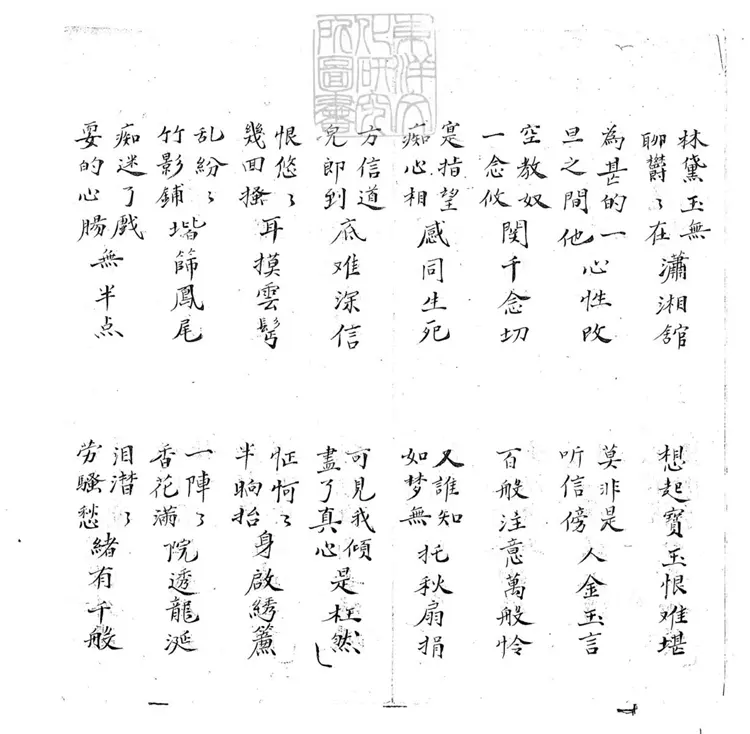 東洋文化研究所圖書
林黛玉無聊欝〻在瀟湘舘
想起寳玉恨难堪
為甚的一旦之間他心性改
莫非是听信傍人金玉言
空教奴一念攸関千念切
百般注意萬般怜
寔指望痴心相感同生死
又誰知如梦無托秋扇捐
方信道皃即到底难深信
可見我傾盡了真心是枉然
恨悠〻幾回搔耳摸雲髩
怔〻半晌抬身啟綉簾
乱紛〻竹影鋪堦篩鳳尾
一陣〻香花滿院透龍涎
痴迷了戲耍的心腸無半点
泪潸〻劳騷愁緒有千般